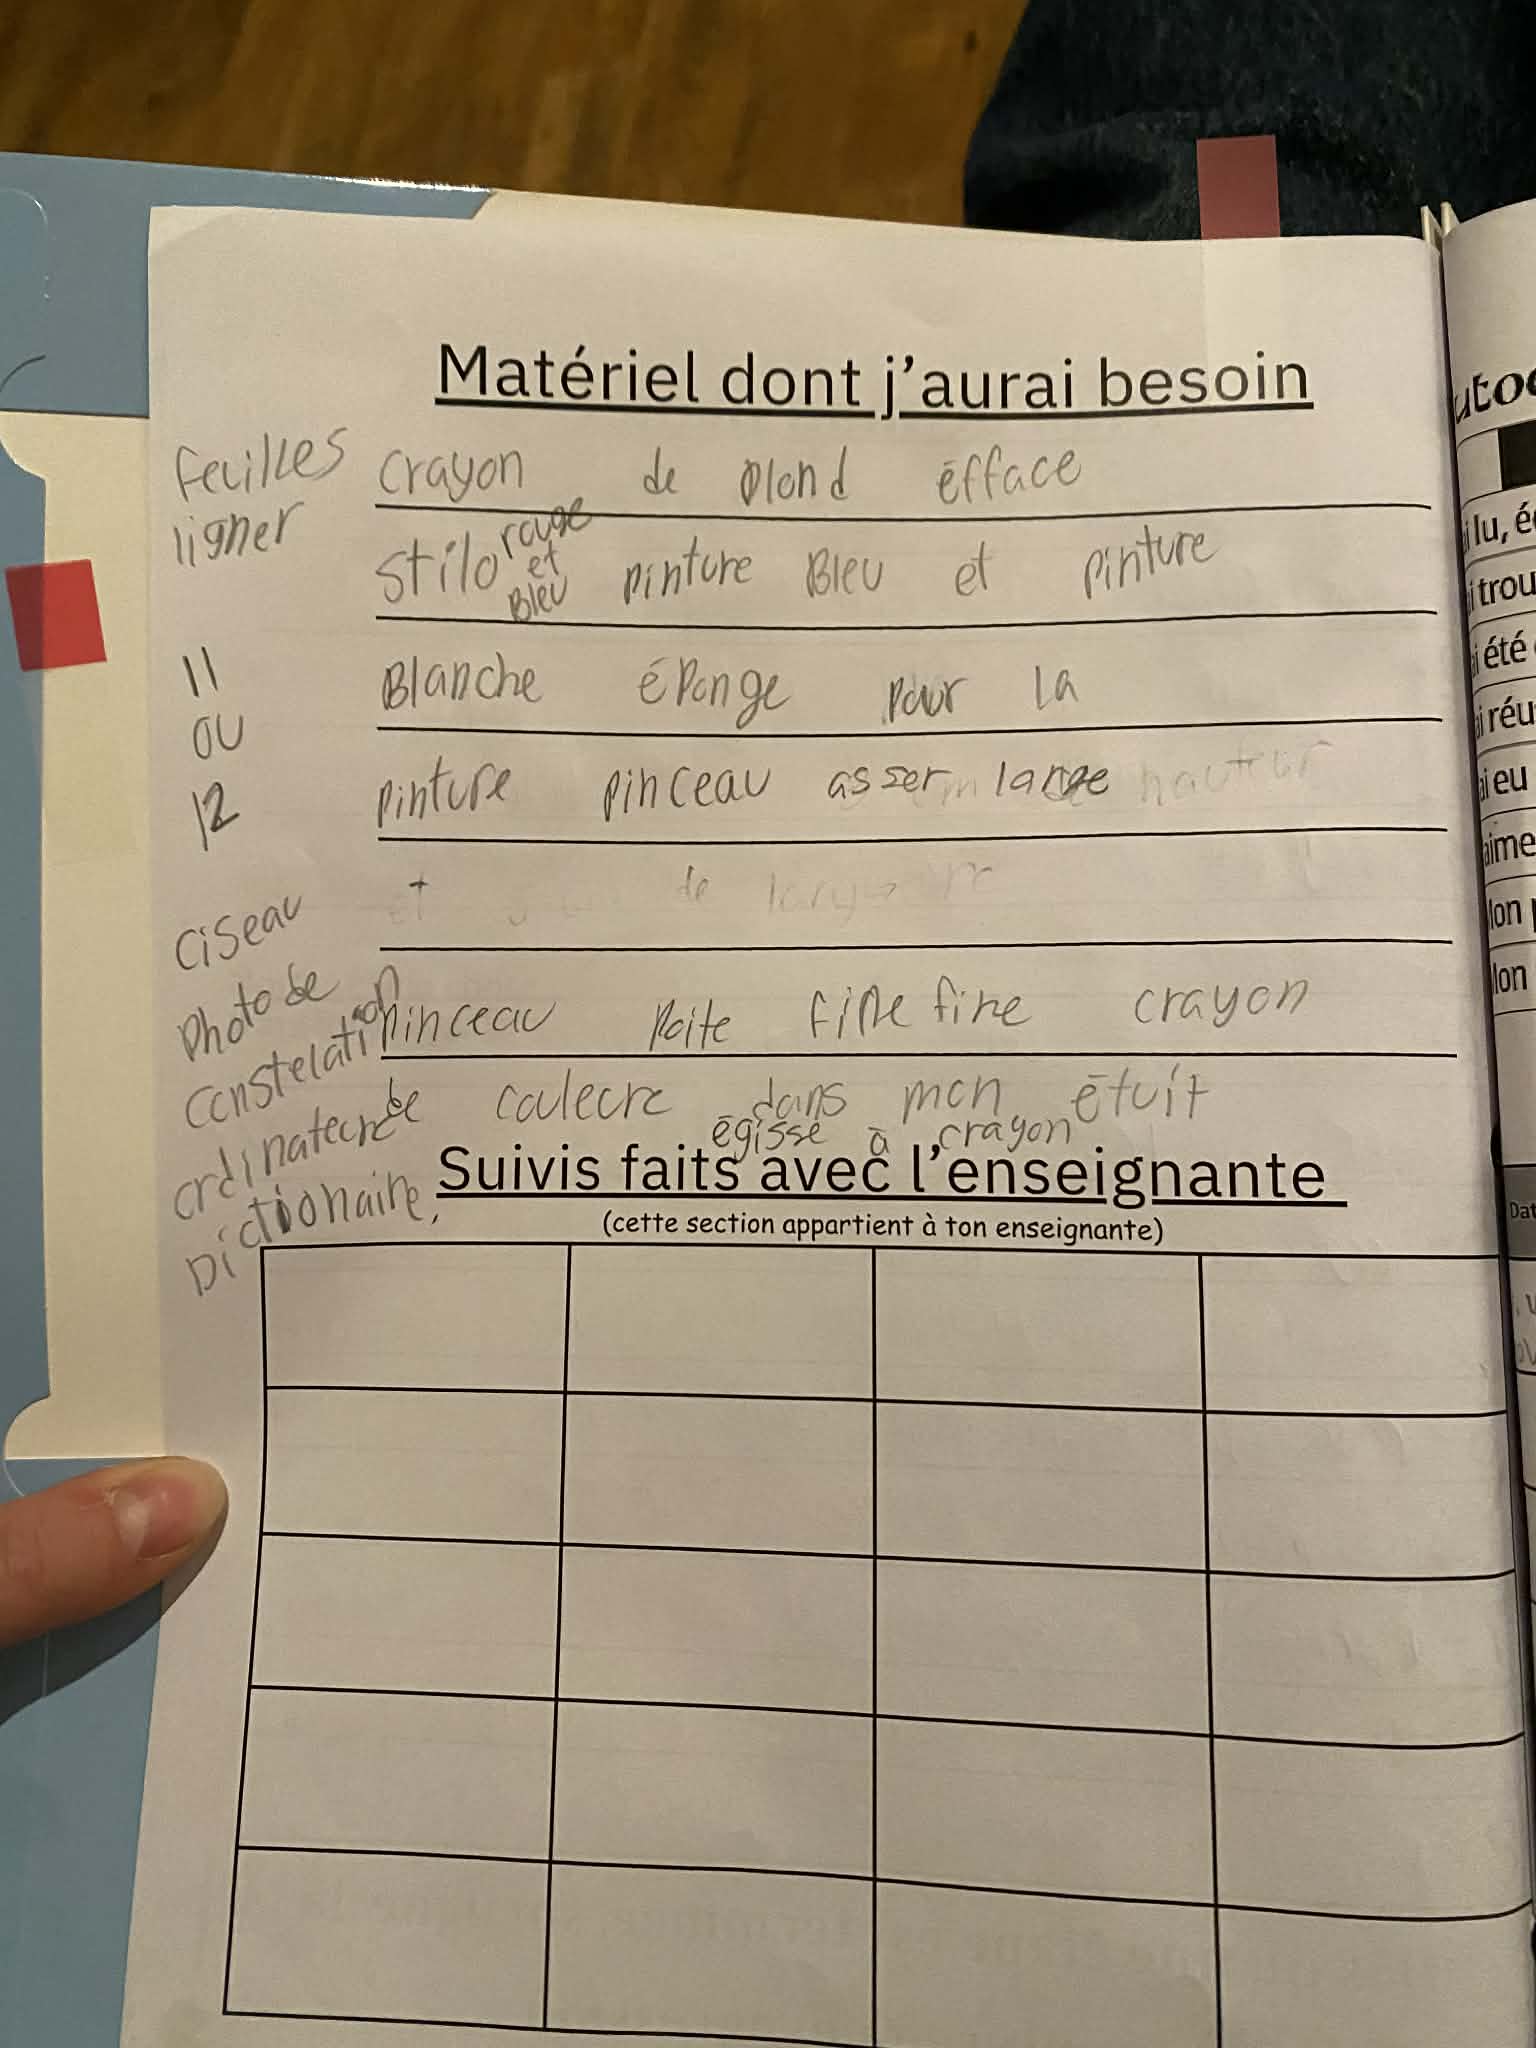 Matériel dont j'aurai besoin
feuilles
ligner
11
ou
12
ciseau
photo de
constelation
ordinateure
Dictionaire,
crayon de plond éfface
stilo rouge et Bleu pinture Bleu et pinture
Blanche éponge pour la
pinture pinceau asser large hauteur
et de
pinceau poite fine fine crayon
de couleure dans mon étuit
égisse à crayon
Suivis faits avec l'enseignante
(cette section appartient à ton enseignante)
utoé
lu, é
i trou
i été
i réu
i eu
aime
Mon
Mon
Dat